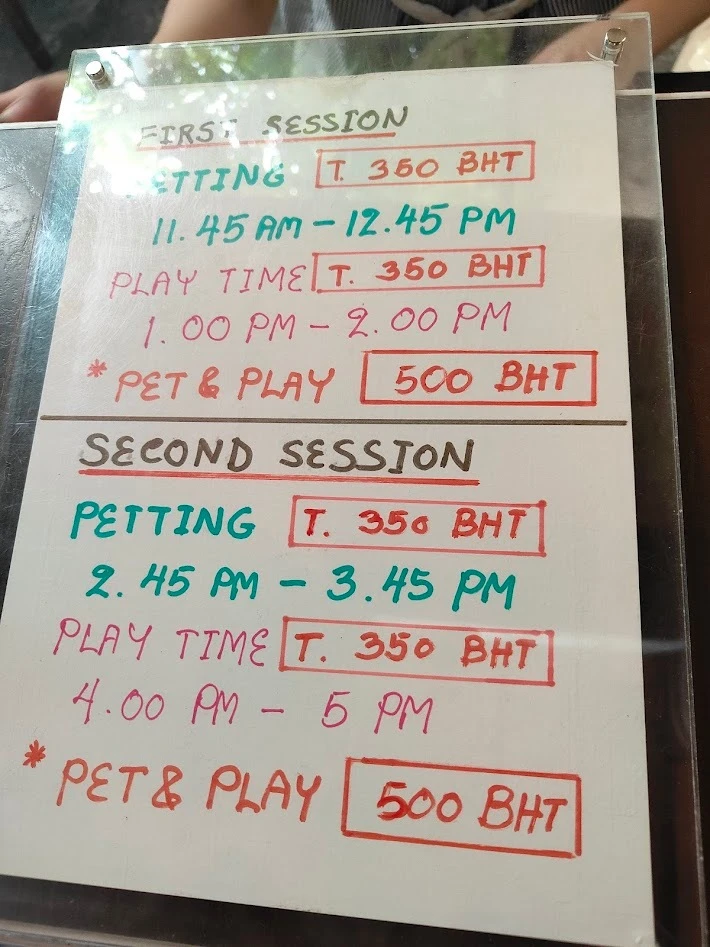 FIRST SESSION
PETTING T. 350 BHT
11.45 AM - 12.45 PM
PLAY TIME T. 350 BHT
1.00 PM - 2.00 PM
* PET & PLAY 500 BHT
SECOND SESSION
PETTING T. 350 BHT
2.45 PM - 3.45 PM
PLAY TIME T. 350 BHT
4.00 PM - 5 PM
* PET & PLAY 500 BHT